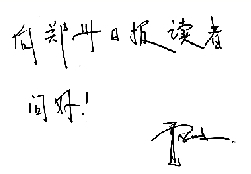 向郑州日报读者
问好!